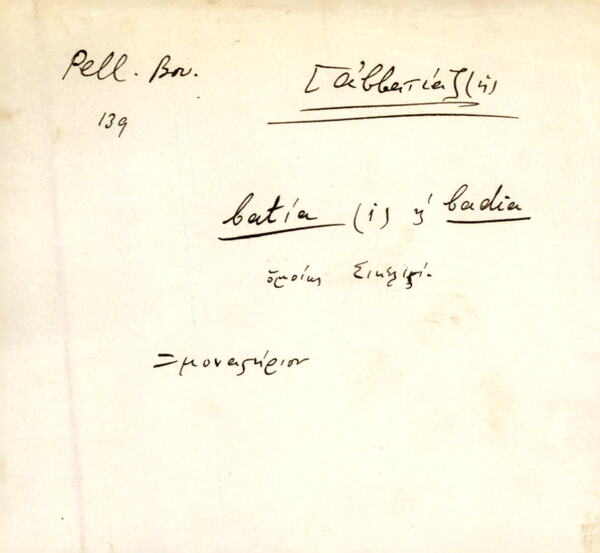 Pell. Bov.
[ἀββατία](ἡ)
139
batía (i) ἤ badia
ὁμοίως Σικελικά.
= μοναστήριον